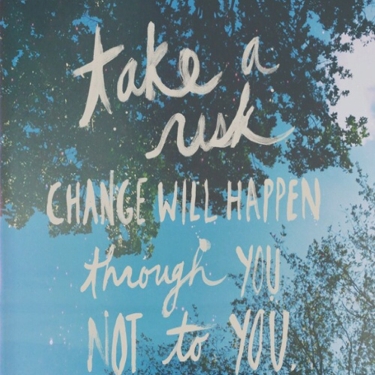 take a
risk
CHANGE WILL HAPPEN
through YOU
NOT to YOU.